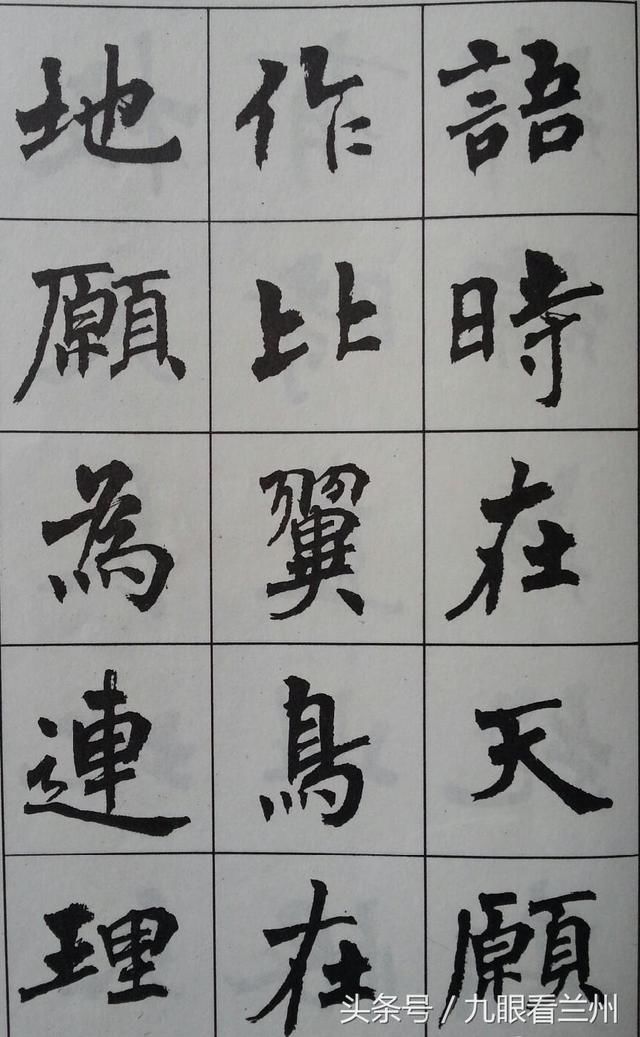 語時在天願
作比翼鳥在
地願為連理
头条号／九眼看兰州